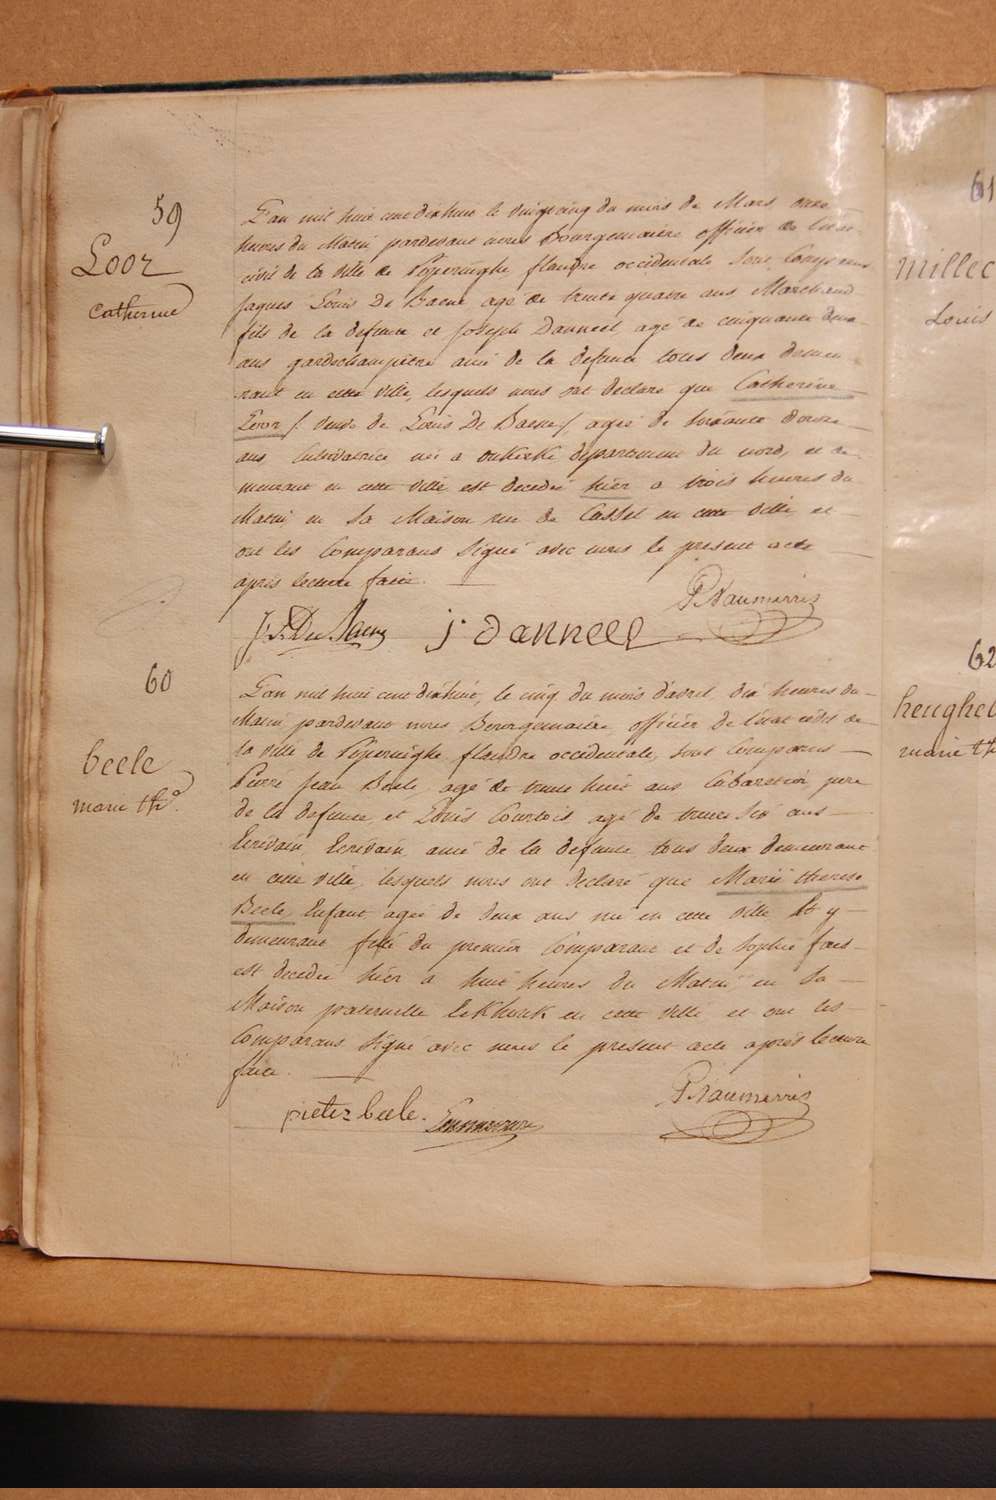 59
Loor
Catherine
L'an mil huit cent dixhuit le vingt cinq du mois de Mars onze
heures du Matin pardevant nous Bourgemaitre officier de l'état
civil de la ville de Poperinghe flandre occidentale sont Comparus
Jaques Louis De Baene agé de trente quatre ans Marchand
fils de la defunte et Joseph Danneel agé de cinquante deux
ans gardechampetre ami de la defunte tous deux demeu
rant en cette ville, lesquels nous ont declaré que Catherine
Loor /: veuve de Louis De Baene / agée de soixante douze
ans Cultivatrice née a departement du nord, et de
meurant en cette ville est decedée hier a trois heures du
Matin en sa Maison rue de Cassel en cette ville et
ont les Comparans signé avec nous le present acte
après lecture faite.
P. Vaumerris
J. L. De Baene j. danneel
60
beele
marie th.e
L'an mil huit cent dixhuit, le cinq du mois d'avril dix heures du
Matin pardevant nous Bourgemaitre officier de l'état civil de
la ville de Poperinghe flandre occidentale, sont Comparus
Pierre Jean Beele, agé de trente huit ans Cabaretier, pere
de la defunte, et Louis Courtois agé de trente six ans
Ecrivain Ecrivain ami de la defunte tous deux demeurant
en cette ville, lesquels nous ont declaré que Marie therese
Beele, Enfant agée de deux ans née en cette ville Et y
demeurant fille du premier Comparant et de Sophie
est decedée hier a huit heures du Matin en sa
Maison paternelle en cette ville et ont les
Comparans signé avec nous le present acte après lecture
faite.
P. Vaumerris
pieter beele.
61
millec
Louis
62
heughel
marie th